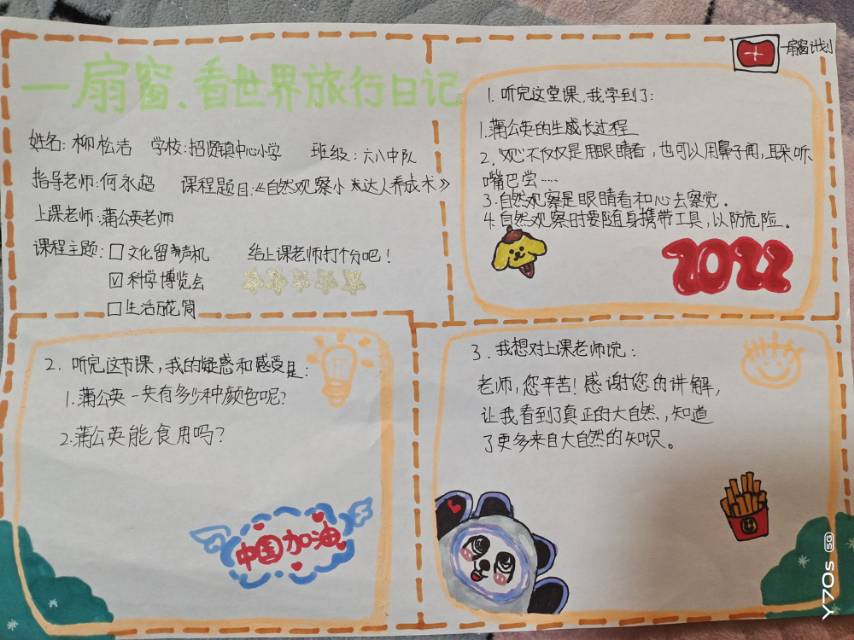 一扇窗、看世界旅行日记
一扇窗计划
姓名: 柳松洁 学校: 招贤镇中心小学 班级: 六八中队
指导老师: 何永超 课程题目:《自然观察小达人养成术》
上课老师: 蒲公英老师
课程主题: 文化留声机 给上课老师打个分吧!
科学博览会
生活万花筒
1. 听完这堂课,我学到了:
1.蒲公英的生成长过程
2. 观察不仅仅是用眼睛看,也可以用鼻子闻,耳朵听
嘴巴尝……
3.自然观察是眼睛看和心去察觉。
4.自然观察时要随身携带工具,以防危险。
2022
2. 听完这节课,我的疑惑和感受是:
1.蒲公英一共有多少种颜色呢?
2.蒲公英能食用吗?
中国加油
3. 我想对上课老师说:
老师,您辛苦!感谢您的讲解,
让我看到了真正的大自然,知道
了更多来自大自然的知识。
Y70s 5G